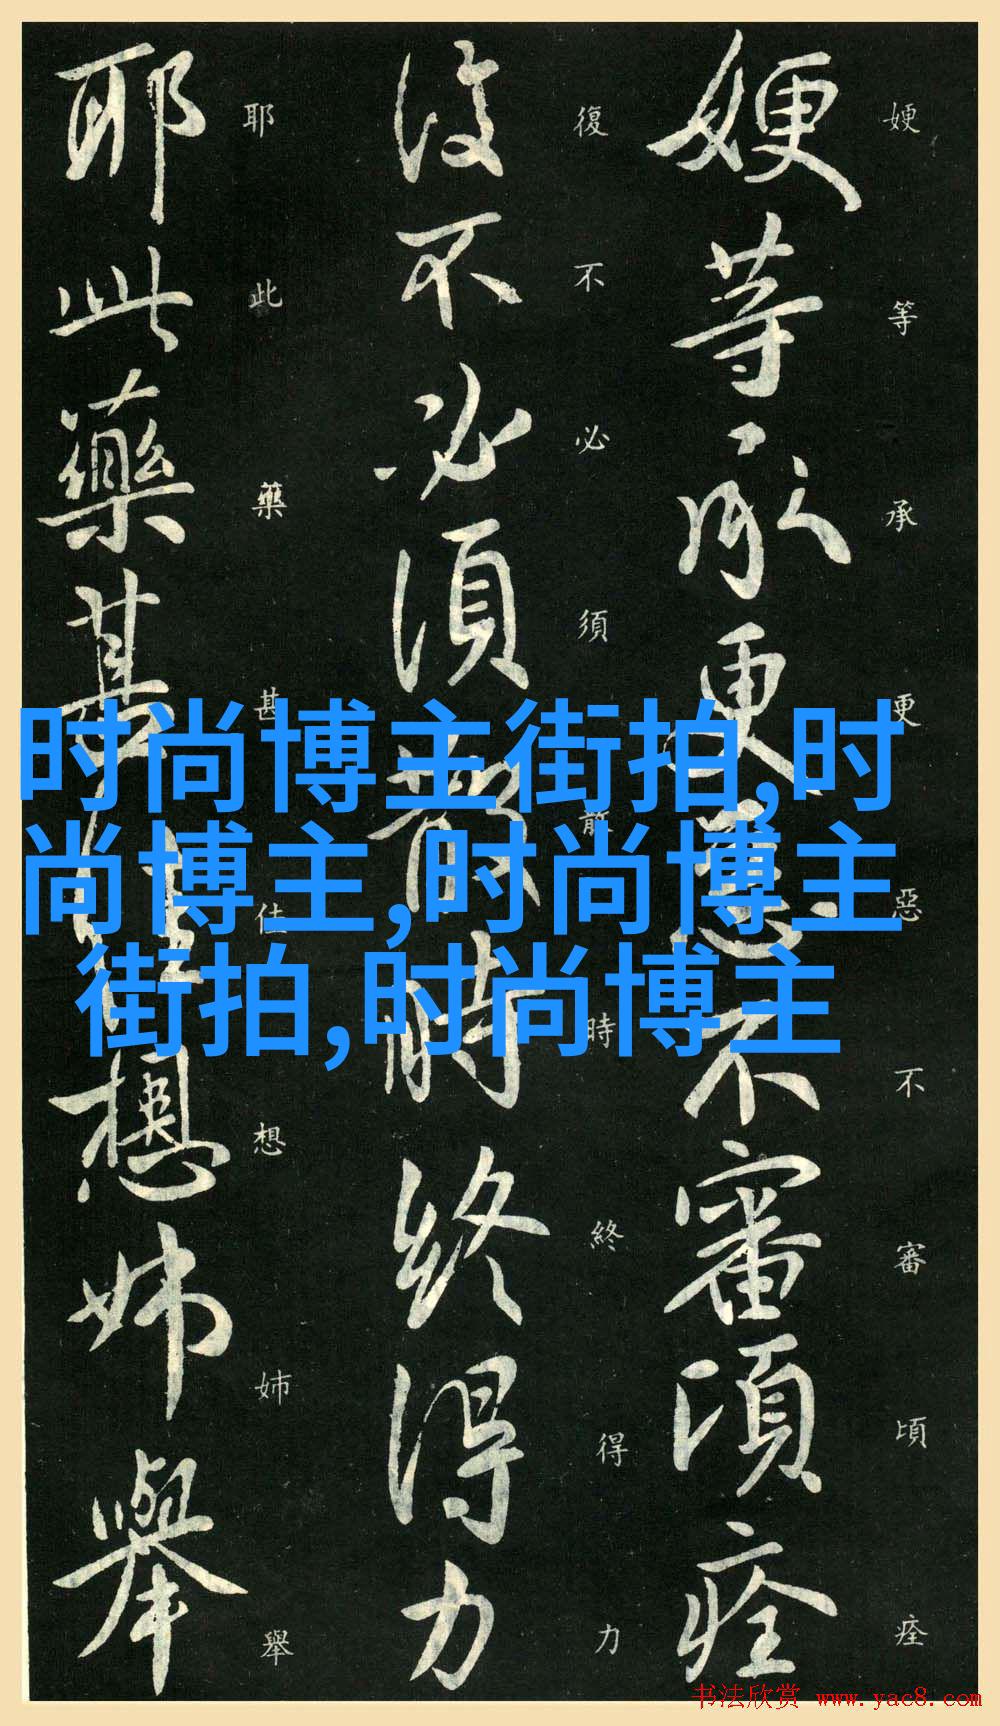 嫂等承更惡不審頃痊
復不必須散時終得力
耶此藥甚佳想姉舉
嫂等承更惡不審頃痊
復不必須散時終得力
耶此藥甚佳想姉舉
时尚博主街拍,时
尚博主,时尚博主
街拍,时尚博主
书法欣赏 www.yac8.com